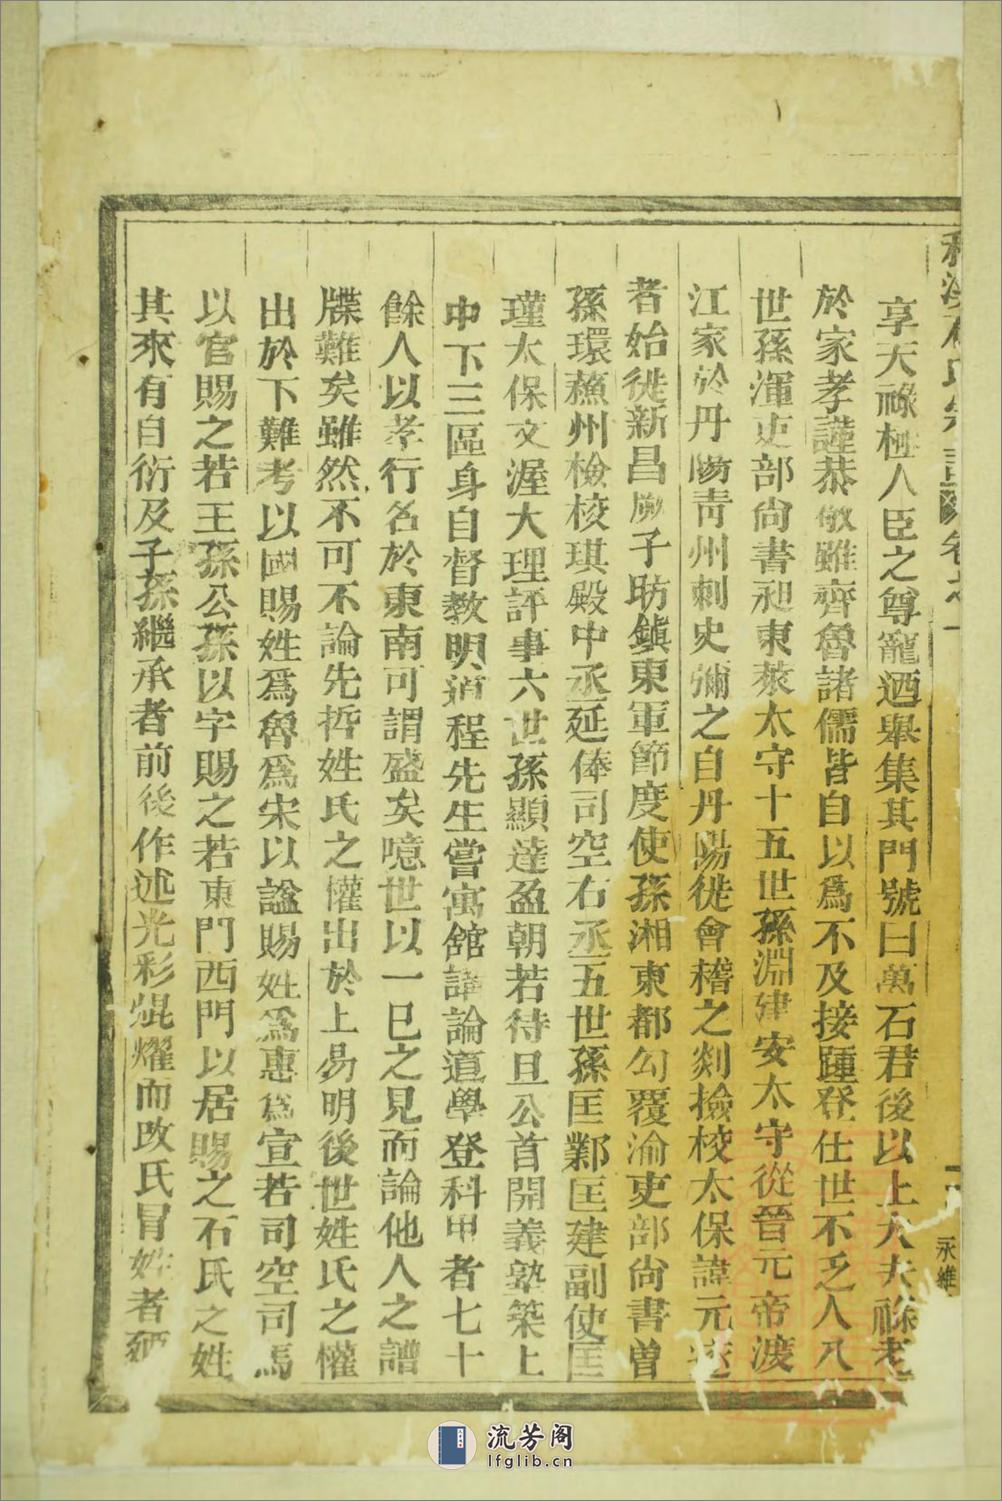 石氏宗譜卷之一
享天祿極人臣之尊寵迺舉集其門號曰萬石君後以上大夫祿老
於家孝謹恭敬雖齊魯諸儒皆自以爲不及接踵登仕世不乏人八
世孫渾吏部尙書昶東萊太守十五世孫淵建安太守從晉元帝渡
江家於丹陽靑州刺史彌之自丹陽徙會稽之剡撿校太保諱元遂
者始徙新昌厥子昉鎭東軍節度使孫湘東都勾覆渝吏部尙書曾
孫環蘓州檢校琪殿中丞延俸司空右丞五世孫匡鄴匡建副使匡
瑾太保文渥大理評事六世孫顯達盈朝若待旦公首開義塾築上
中下三區身自督教明道程先生嘗寓舘諱論道學登科甲者七十
餘人以孝行名於東南可謂盛矣噫世以一已之見而論他人之譜
牒難矣雖然不可不論先哲姓氏之懽出於上易明後世姓氏之懽
出於下難考以國賜姓爲魯爲宋以諡賜姓爲惠爲宣若司空司馬
以官賜之若王孫公孫以字賜之若東門西門以居賜之石氏之姓
其來有自衍及子孫繼承者前後作述光彩焜耀而改氏冒姓者
永維
流芳阁
lfglib.cn